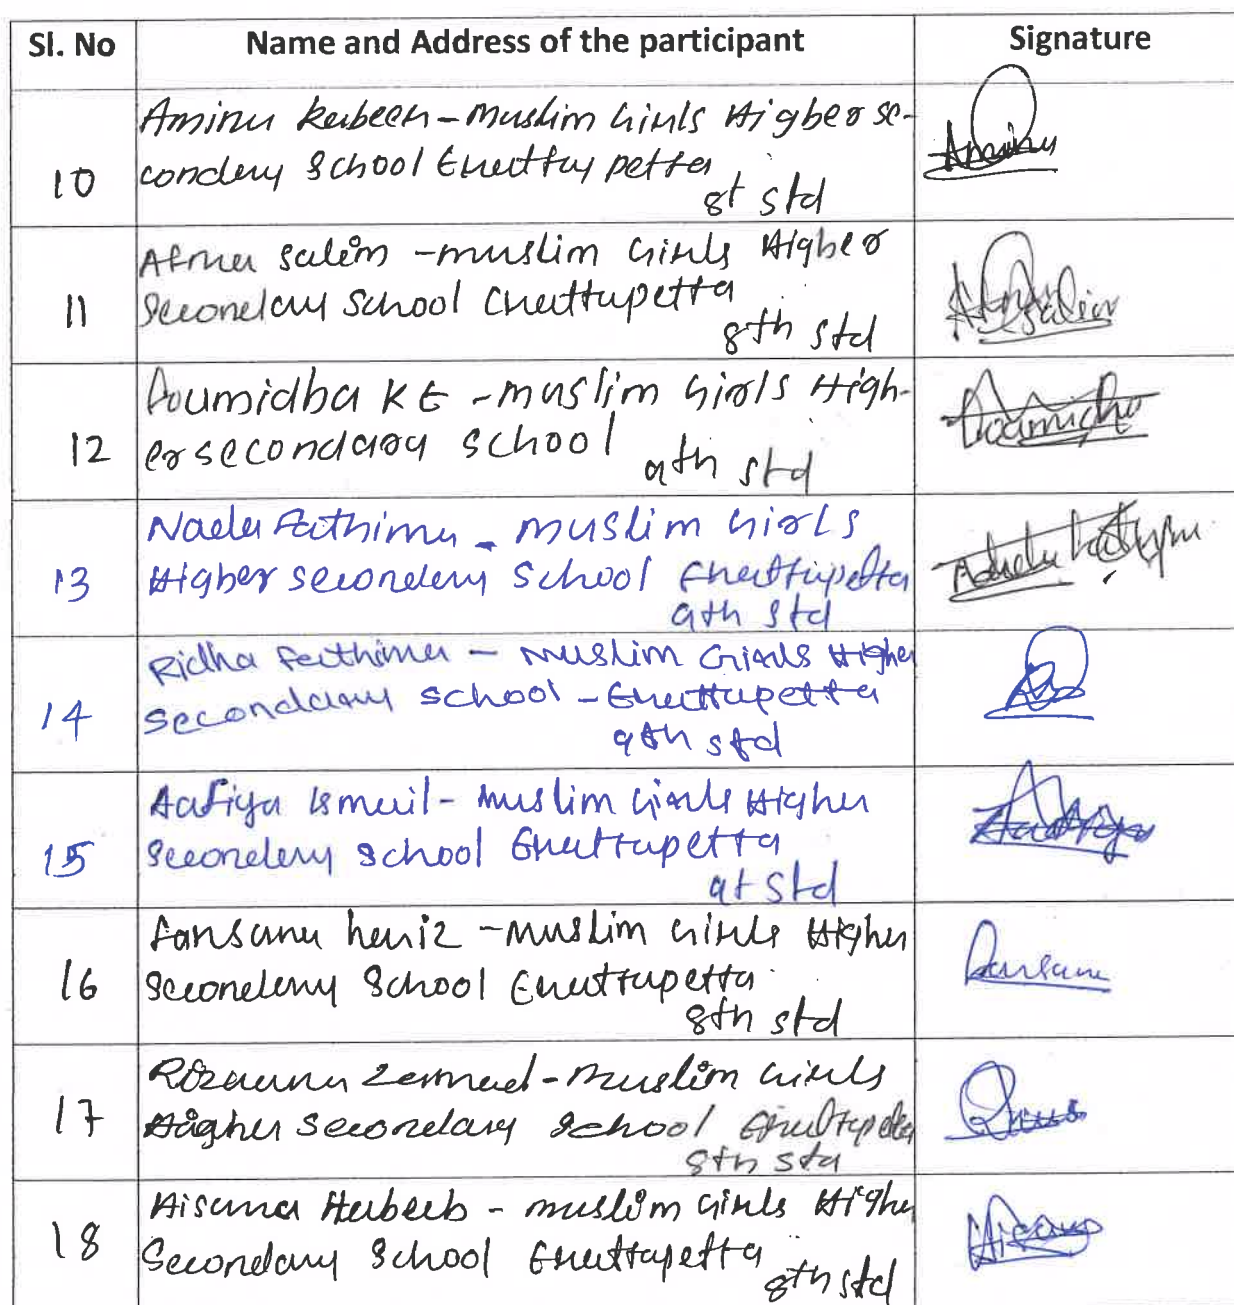 Sl. No Name and Address of the participant Signature
10 Aminu Kabeer - Muslim Girls Higher se-
condery School Erattupetta
8t std
Aminu
11 Afna Salim - muslim Girls Higher
Secondary School Erattupetta
8th std
12 KE - muslim Girls High-
er secondary school
9th std
13 Naela Fathima - muslim Girls
Higher secondery School Erattupetta
9th std
14 Ridha Fathima - Muslim Girls Higher
Secondary school - Erattupetta
9th std
15 Aafiya Ismail - Muslim Girls Higher
Secondery School Erattupetta
9t std
16 Farsana haniz - Muslim Girls Higher
Secondery School Erattupetta
8th std
Farsana
17 Rizwana - Muslim Girls
Higher Secondary School Erattupetta
8th std
18 Aisana Habeeb - muslim Girls Higher
Secondary School Erattupetta
8th std